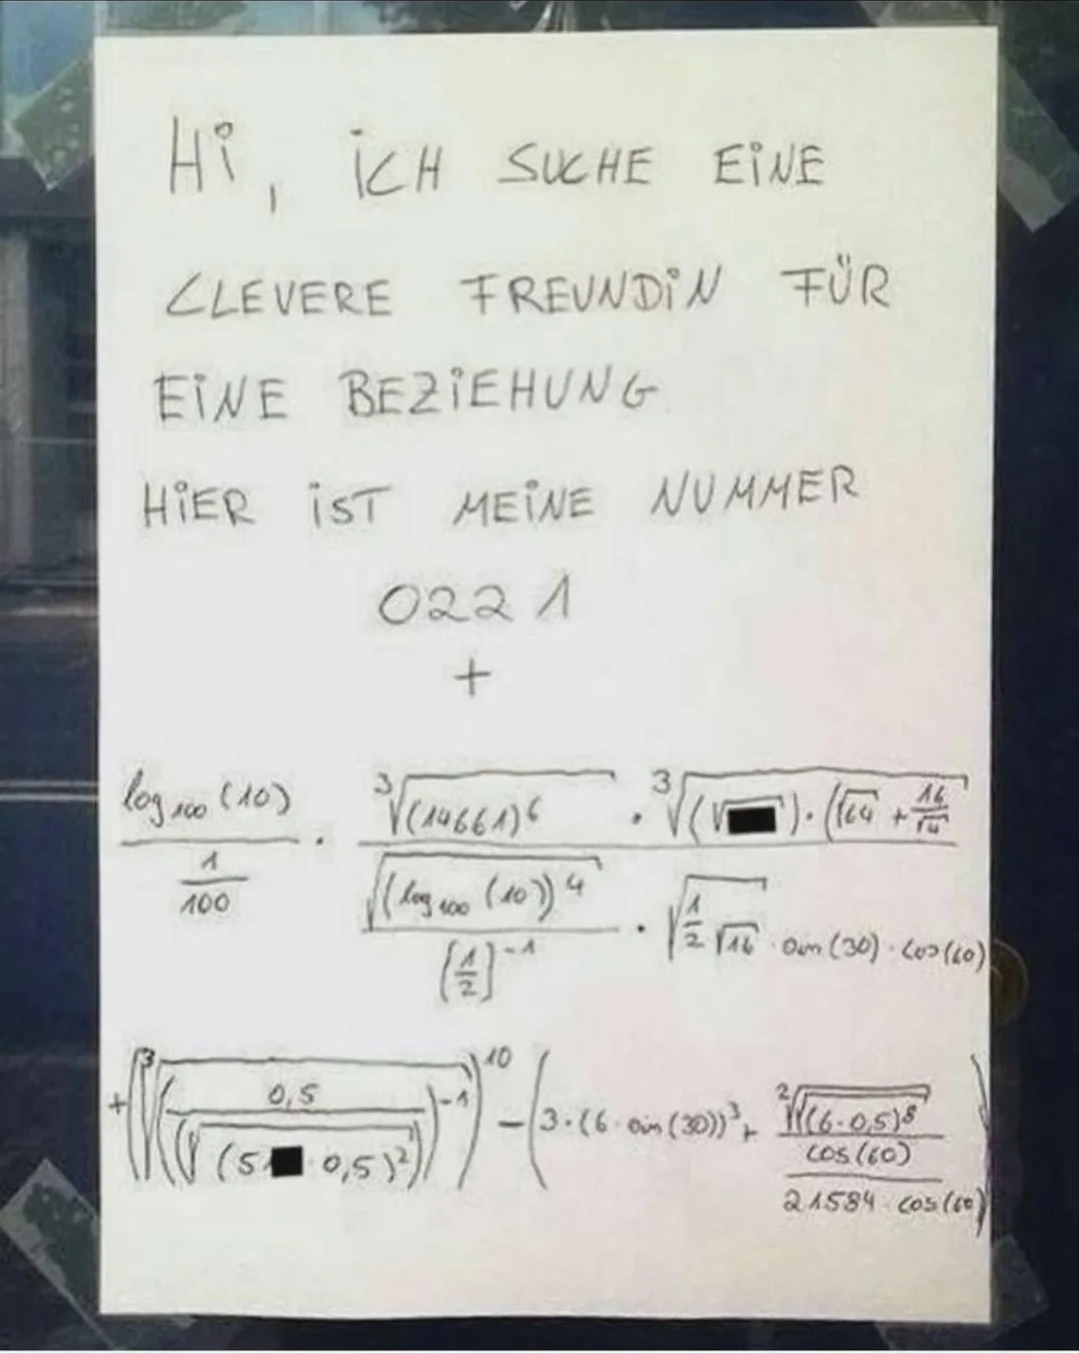 Hi, ICH SUCHE EINE
CLEVERE FREUNDIN FÜR
EINE BEZIEHUNG
HIER IST MEINE NUMMER
0221
+
log₁₀₀(10) / (1/100) · (³√((14661)⁶) · ³√((√ ) · (√64 + 16/√4))) / (√((log₁₀₀(10))⁴) / (1/2)⁻¹ · √(1/2 √16) · sin(30) · cos(60))
+ (√(³√((0,5 / (√((5 · 0,5)²)))⁻¹)))¹⁰ − (3·(6·sin(30))³ + ²√(√((6·0,5)⁸)) / cos(60) / 21584 · cos(60))